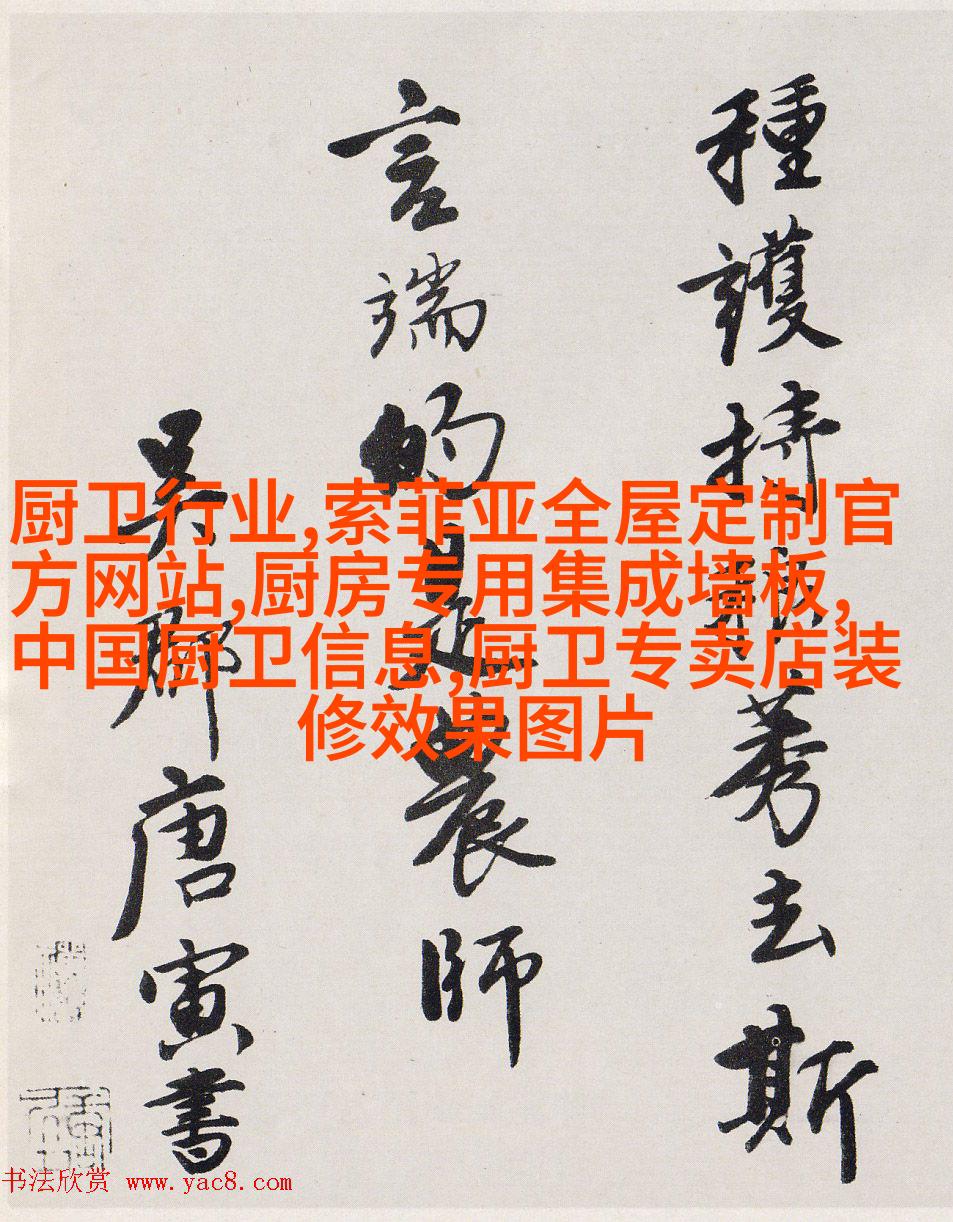 種護持莠去斯
言端的是農師
吳鄉唐寅書
厨卫行业,索菲亚全屋定制官
方网站,厨房专用集成墙板,
中国厨卫信息,厨卫专卖店装
修效果图片
书法欣赏 www.yac8.com